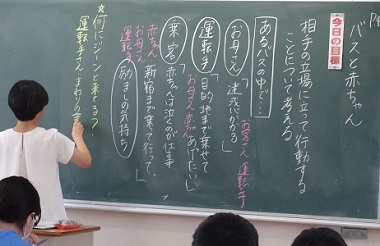 P4
バスと赤ちゃん
今日の目標
相手の立場に立って行動する
ことについて考える
あるバスの中で…
お客さん 運転手
お母さん「迷惑かかる」
運転手「目的地まで乗せて
あげたい」
お母さん 赤ちゃん
乗客「赤ちゃんは泣くのが仕事
新宿まで乗って行って。」
赤ちゃん
お母さん
運転手
励ましの気持ち
☆何にジーンと来てる?
運転手さん、まわりの